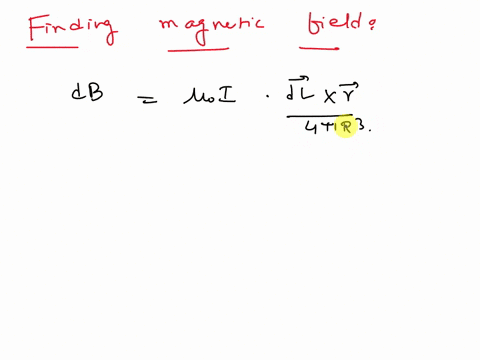 Finding magnetic field:
dB = μ₀I · d⃗L × r⃗ / 4πR³.